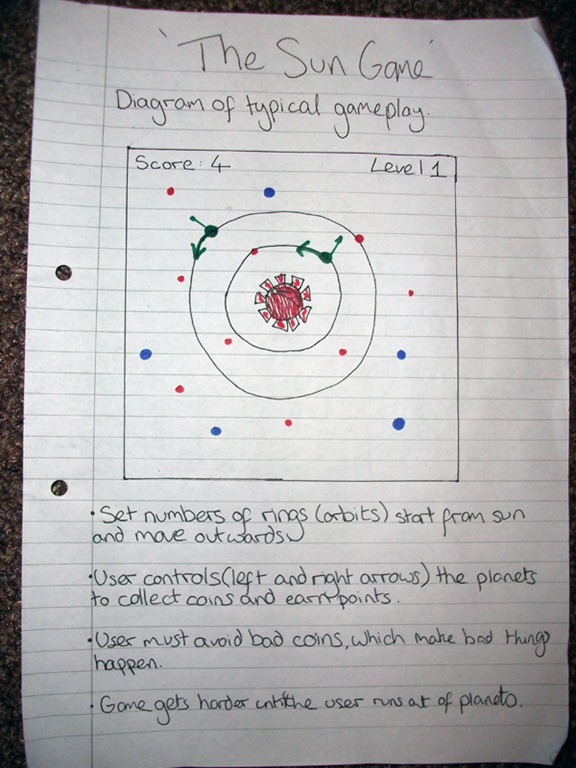 'The Sun Game'
Diagram of typical gameplay.
Score: 4
Level 1
• Set numbers of rings (orbits) start from sun
and move outwards
• User controls (left and right arrows) the planets
to collect coins and earn points.
• User must avoid bad coins, which make bad things
happen.
• Game gets harder until the user runs out of planets.